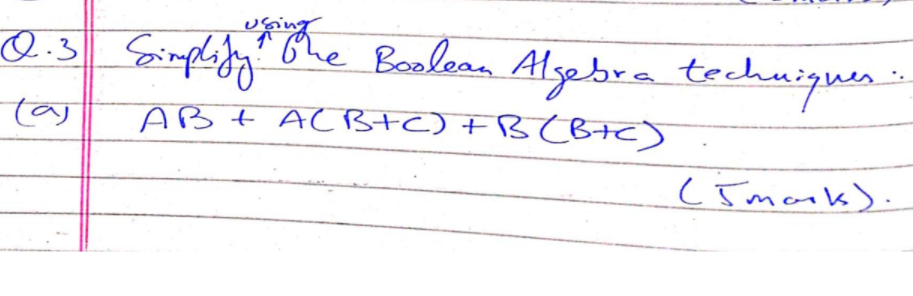 using
Q.3 Simplify the Boolean Algebra techniques :
(a) AB + A(B+C) + B(B+C)
(5 mark).